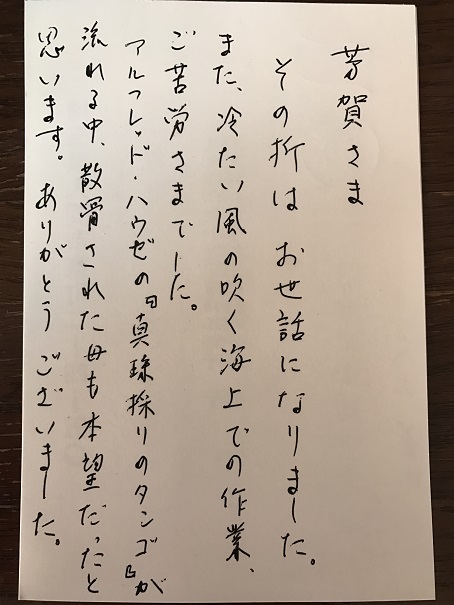 芳賀さま
その折は お世話になりました。
また、冷たい風の吹く海上での作業、
ご苦労さまでした。
アルフレッド・ハウゼの『真珠採りのタンゴ』が
流れる中、散骨された母も本望だったと
思います。ありがとうございました。